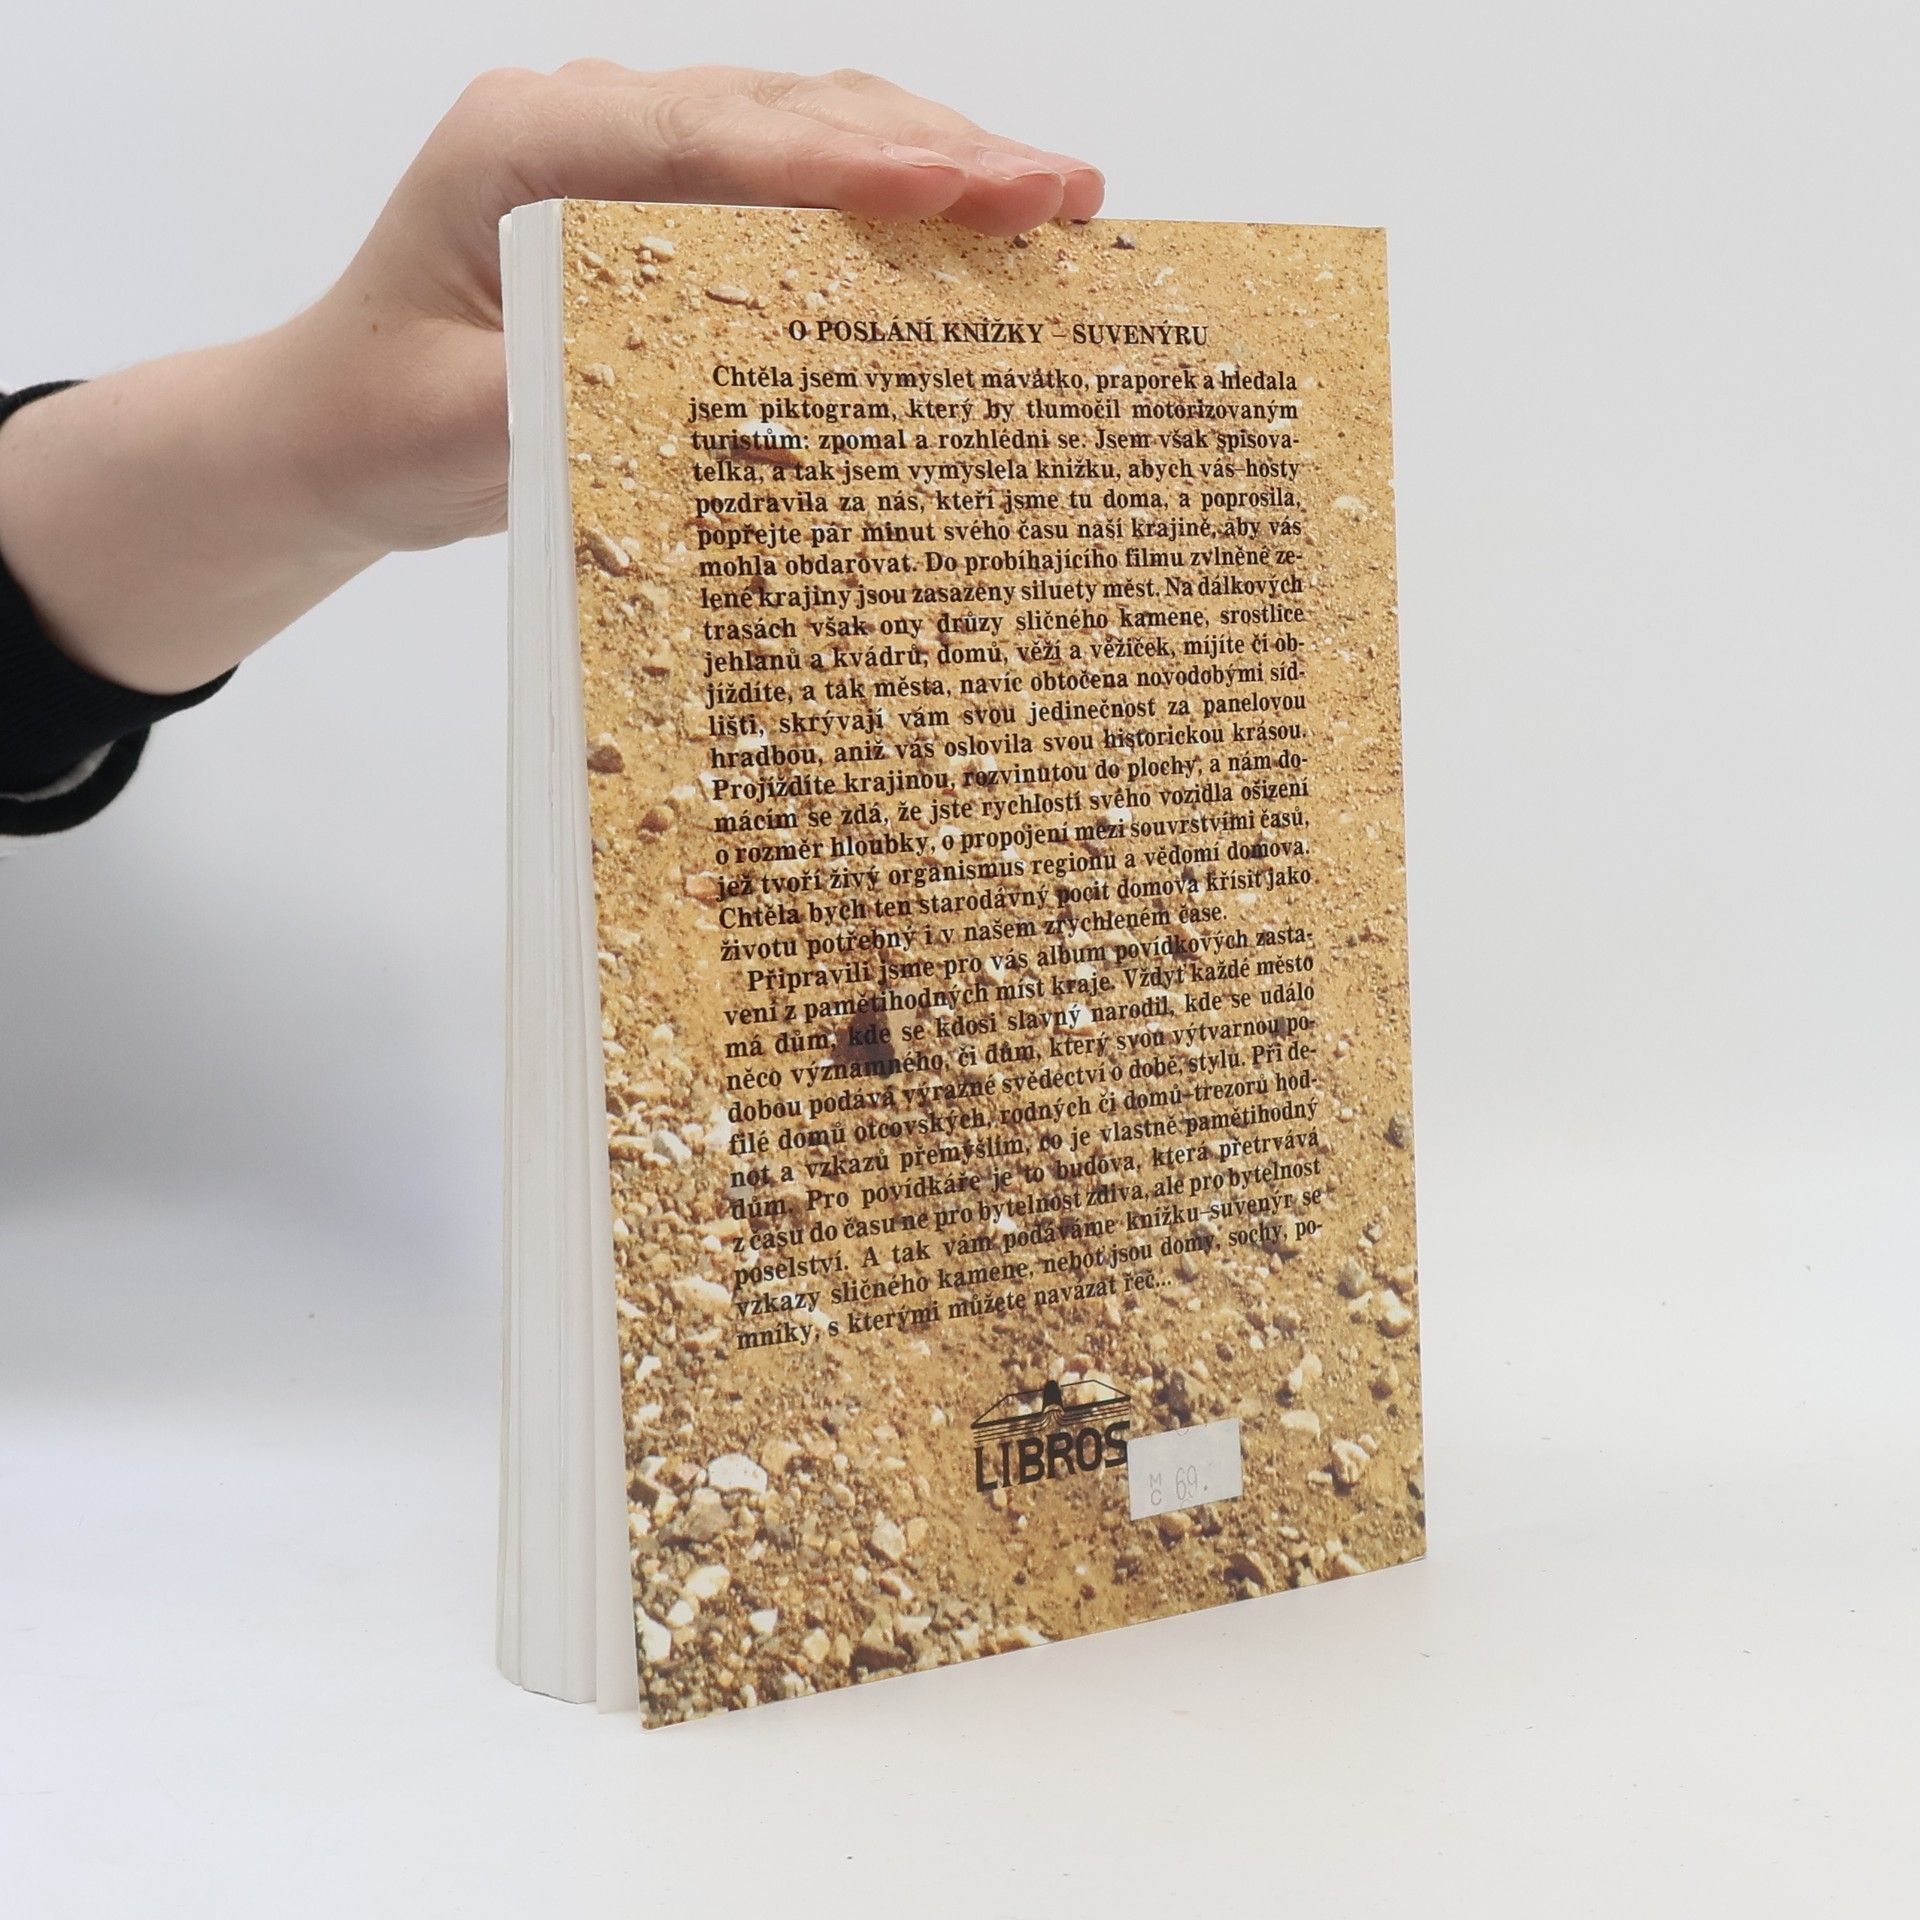 O POSLÁNÍ KNÍŽKY – SUVENÝRU
Chtěla jsem vymyslet mávátko, praporek a hledala
jsem piktogram, který by tlumočil motorizovaným
turistům: zpomal a rozhlédni se. Jsem však spisova-
telka, a tak jsem vymyslela knížku, abych vás–hosty
pozdravila za nás, kteří jsme tu doma, a poprosila,
popřejte pár minut svého času naší krajině, aby vás
mohla obdarovat. Do probíhajícího filmu zvlněné ze-
lené krajiny jsou zasazeny siluety měst. Na dálkových
trasách však ony drůzy sličného kamene, srostlice
jehlanů a kvádrů, domů, věží a věžiček, míjíte či ob-
jíždíte, a tak města, navíc obtočena novodobými síd-
lišti, skrývají vám svou jedinečnost za panelovou
hradbou, aniž vás oslovila svou historickou krásou.
Projíždíte krajinou, rozvinutou do plochy, a nám do-
mácím se zdá, že jste rychlostí svého vozidla ošizeni
o rozměr hloubky, o propojení mezi souvrstvími časů,
jež tvoří živý organismus regionu a vědomí domova.
Chtěla bych ten starodávný pocit domova křísit jako
životu potřebný i v našem zrychleném čase.
Připravili jsme pro vás album povídkových zasta-
vení z pamětihodných míst kraje. Vždyť každé město
má dům, kde se kdosi slavný narodil, kde se událo
něco významného, či dům, který svou výtvarnou po-
dobou podává výrazné svědectví o době, stylu. Při de-
filé domů otcovských, rodných či domů–trezorů hod-
not a vzkazů přemýšlím, co je vlastně pamětihodný
dům. Pro povídkáře je to budova, která přetrvává
z času do času ne pro bytelnost zdiva, ale pro bytelnost
poselství. A tak vám podáváme knížku–suvenýr se
vzkazy sličného kamene, neboť jsou domy, sochy, po-
mníky, s kterými můžete navázat řeč...
LIBROS
MC 69.